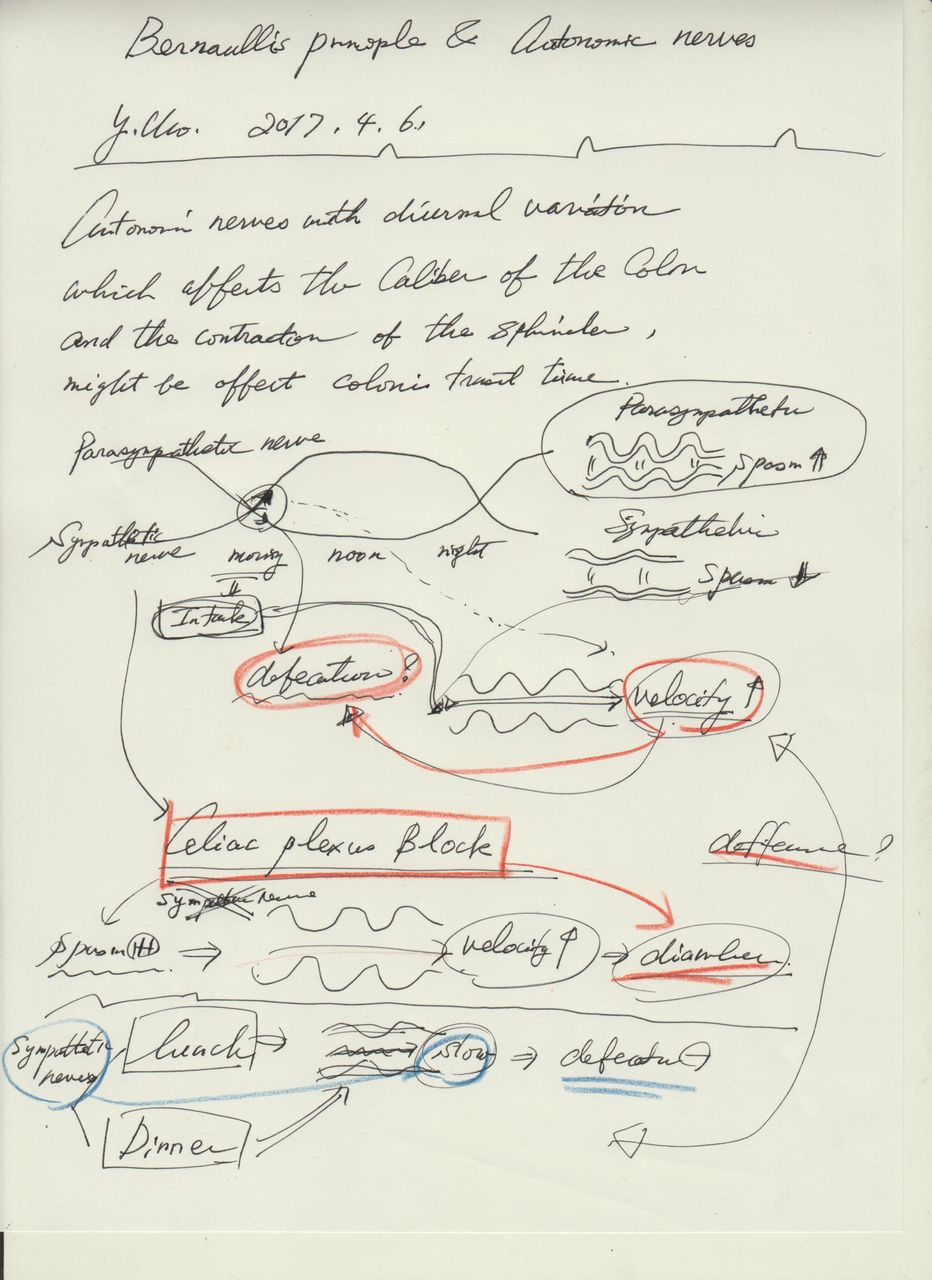 Bernaullis prinople & Autonomic nerves
2017. 4. 6.
Autonomi nerves with diurnal variation
which affects the Caliber of the Colon
and the contraction of the sphincler,
might be affect colonis trasit time.
Parasympathetic nerve
Parasympathetic
spasm ⇑
Sympathetic
nerve
morning
noon
night
Sympathetic
spasm ⇓
Intake
defecation?
velocity ↑
Celiac plexus Block
Sympathetic nerve
spasm (+++) ⇒ velocity ↑ ⇒ diarrhea.
Sympathetic
nerves
Lunch ⇒ slow ⇒ defecatu(-)
Dinner